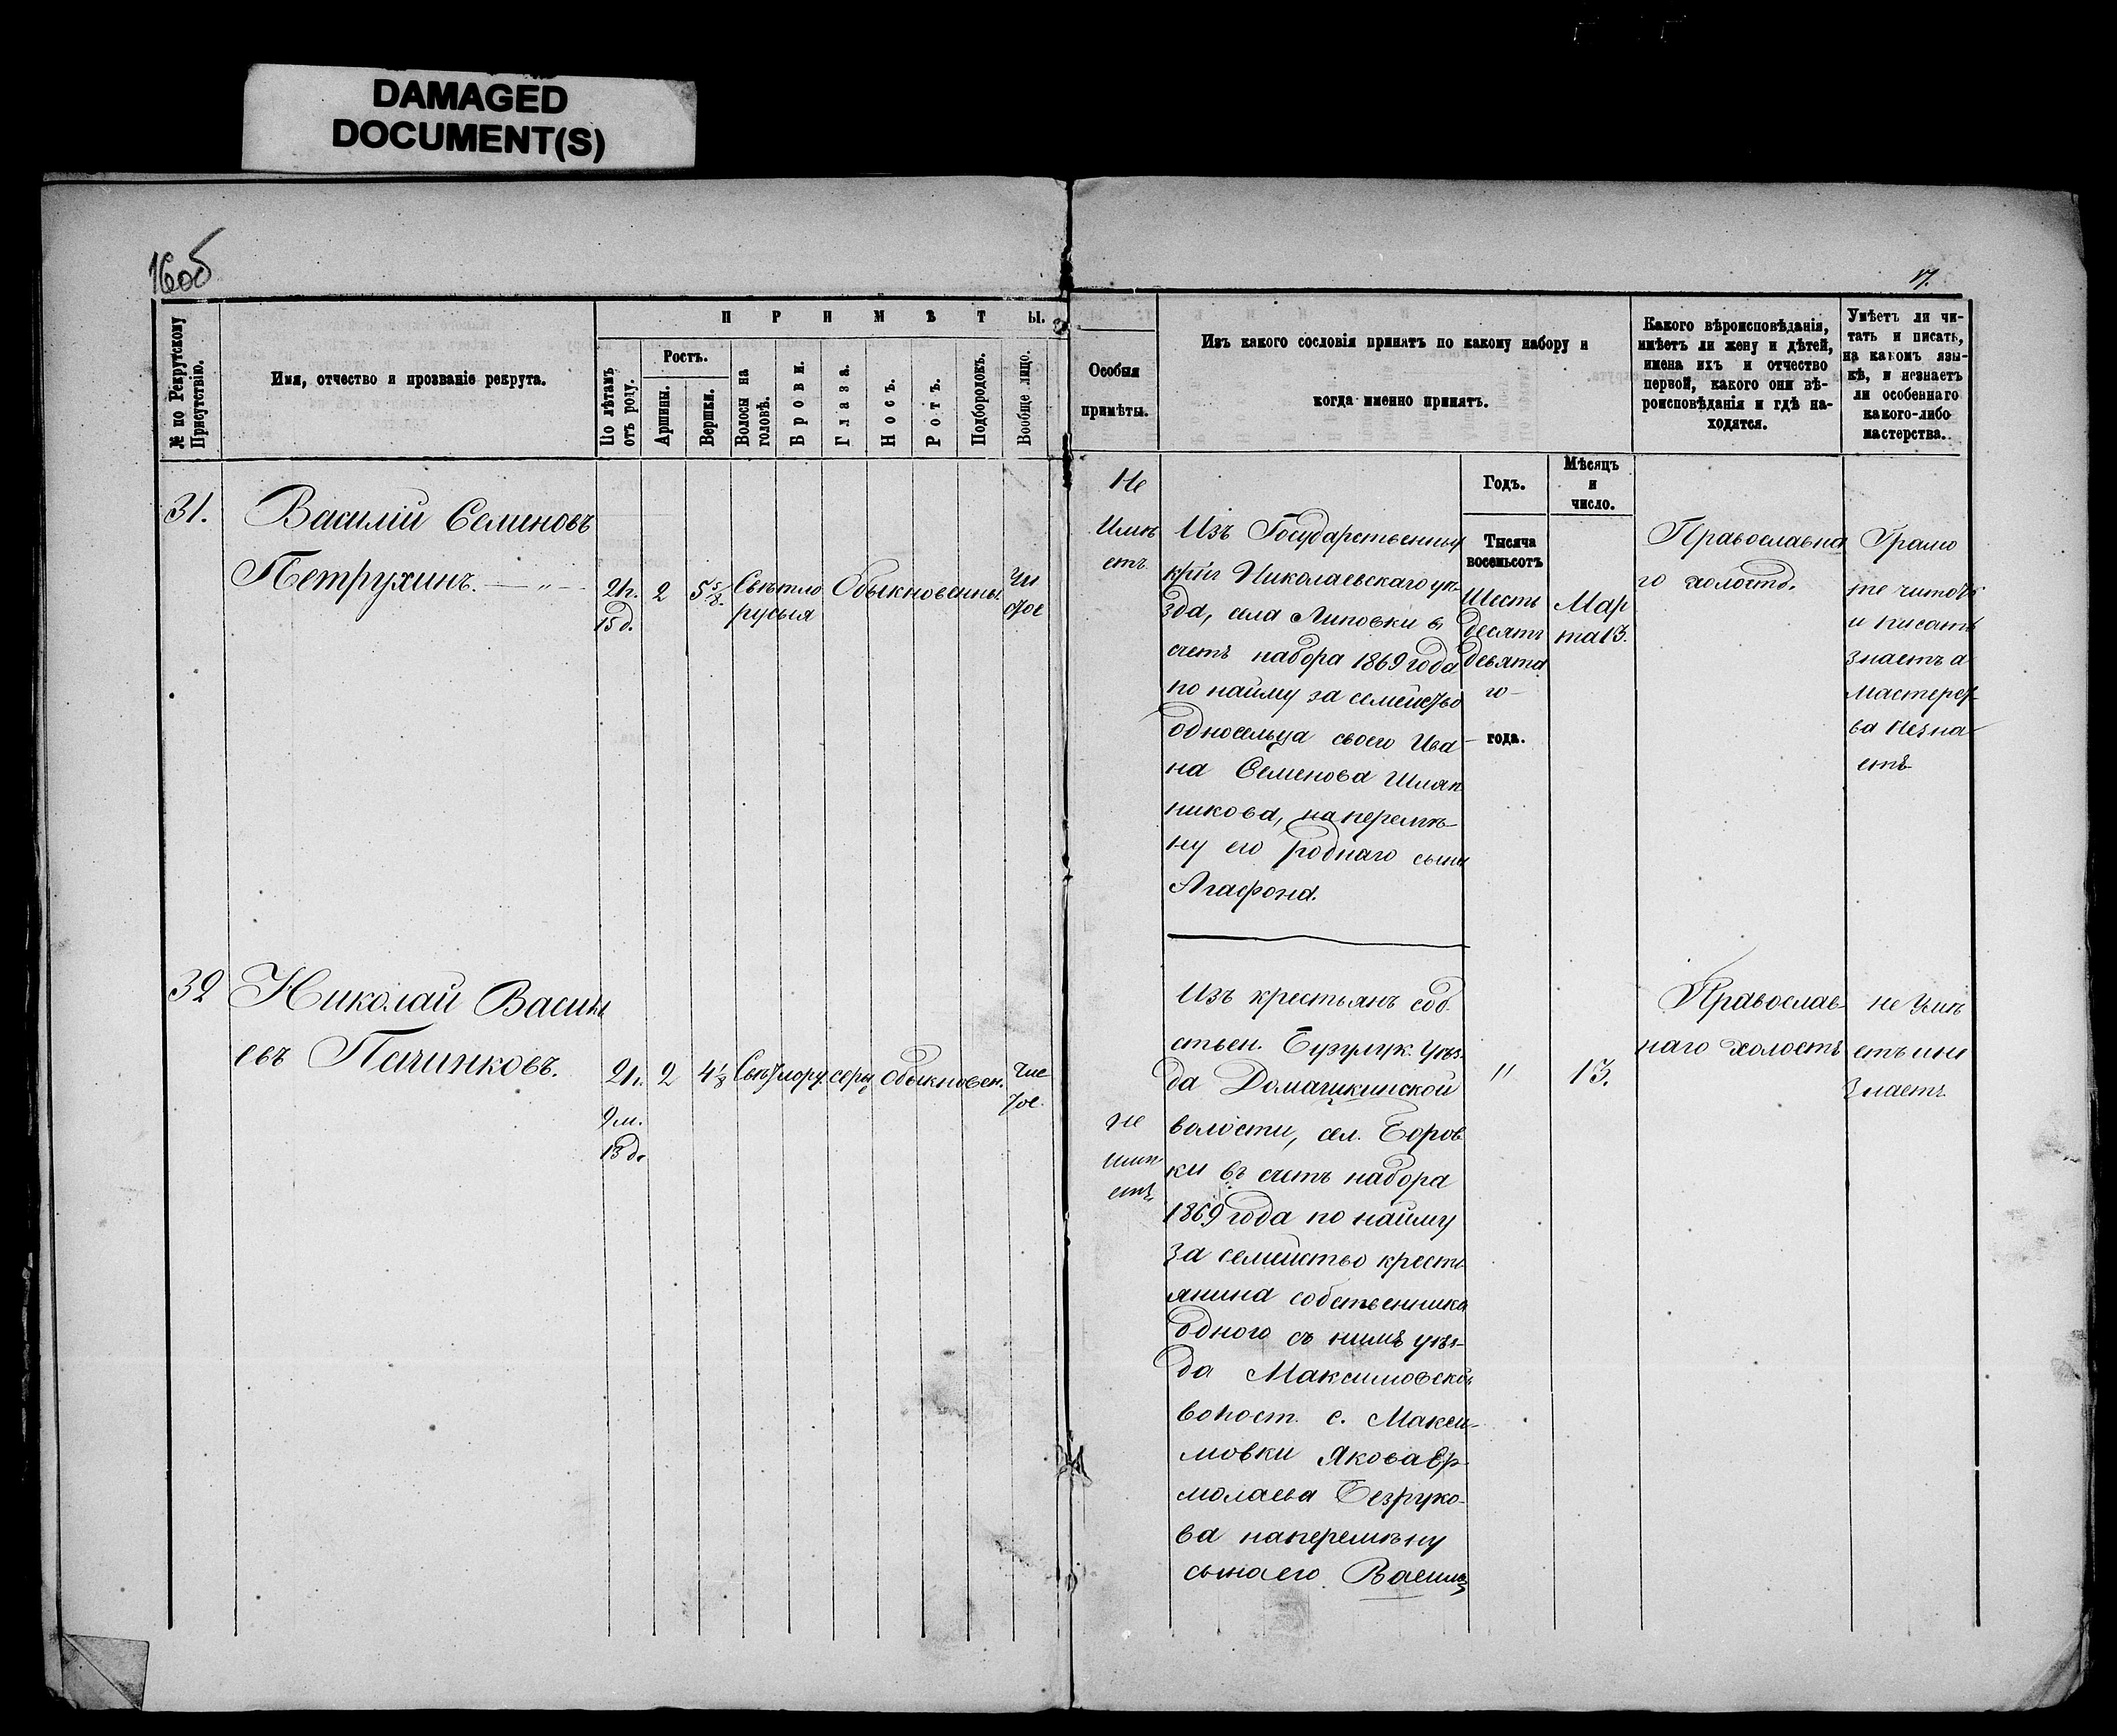 DAMAGED
DOCUMENT(S)
16об
17.
№ по Рекрутскому Присутствію.
Имя, отчество и прозваніе рекрута.
ПРИМѢТЫ.
По лѣтамъ отъ роду.
Ростъ.
Аршины.
Вершки.
Волосы на головѣ.
Брови.
Глаза.
Носъ.
Ротъ.
Подбородокъ.
Вообще лицо.
Особыя
примѣты.
Изъ какого сословія принятъ по какому набору и
когда именно принятъ.
Какого вѣроисповѣданія,
имѣетъ ли жену и дѣтей,
имена ихъ и отчество
первой, какого они вѣ-
роисповѣданія и гдѣ на-
ходятся.
Умѣетъ ли чи-
тать и писать,
на какомъ язы-
кѣ, и незнаетъ
ли особеннаго
какого-либо
мастерства.
Годъ.
Мѣсяцъ
и
число.
31.
Василій Семеновъ
Петрухинъ. — " —
21г.
15 д.
2
5 5/8.
Свѣтло
русыя
Обыкновенны.
Чи
стое
Не
Имѣ
етъ
Изъ Государственных
крпг Николаевскаго уѣ-
зда, села Липовки въ
счетъ набора 1869 года
по найму за семейство
односельца своего Ива
на Семенова Шляп
никова, на перемѣ-
ну его роднаго сына
Агафона.
Тысяча
восемьсотъ
Шесть
десятъ
девята
го –
года.
Мар
та 13.
Православна
го холостъ.
Грамо
те читать
и писать
знаетъ а
мастерст-
ва незна
етъ
32
Николай Василь
евъ Пачинковъ.
21г.
9 м.
13 д.
2
4 1/8
Свѣтлору. серы Обыкновен.
Чис
тое.
не
имѣ
етъ.
Изъ крестьянъ соб.
ствен. Бузулук. Уѣз.
да Домашкинской
волости, сел. Боров
ки въ счетъ набора
1869 года по найму
за семейство кресть
янина собственника
одного съ нимъ уѣз-
да Максимовской
волост. с. Макси-
мовки Якова Ер-
молаева Безруко-
ва на перемѣну
сына его Василія
"
13.
Православ-
наго холостъ
не умѣ
етъ и не
знаетъ